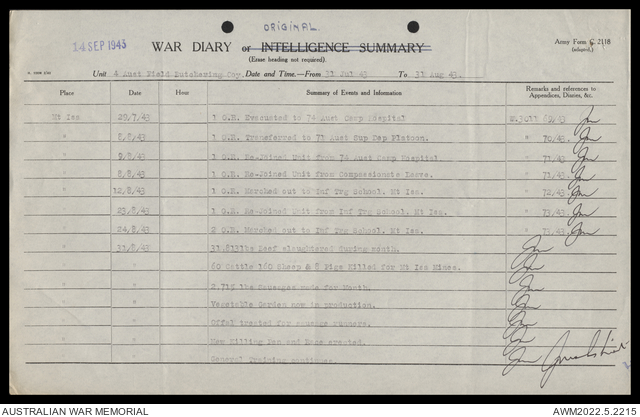 ORIGINAL
14 SEP 1943
WAR DIARY or INTELLIGENCE SUMMARY
Army Form C. 2118
(adapted.)
(Erase heading not required).
Unit 4 Aust Field Butchering Coy. Date and Time.—From 31 Jul 43 To 31 Aug 43.
Place Date Hour Summary of Events and Information Remarks and references to Appendices, Diaries, &c.
Mt Isa 29/7/43 1 O.R. Evacuated to 74 Aust Camp Hospital 69/43
" 8/8/43 1 O.R. Transferred to 71 Aust Sup Dep Platoon. " 70/43
" 9/8/43 1 O.R. Re-Joined Unit from 74 Aust Camp Hospital. " 71/43
" 8/8/43 1 O.R. Re-Joined Unit from Compassionate Leave. " 71/43
" 12/8/43 1 O.R. Marched out to Inf Trg School. Mt Isa. " 72/43
" 23/8/43 1 O.R. Re-Joined Unit from Inf Trg School. Mt Isa. " 73/43
" 24/8/43 2 O.R. Marched out to Inf Trg School. Mt Isa. " 73/43
" 31/8/43 31,813lbs Beef slaughtered during month.
" 60 Cattle 160 Sheep & 8 Pigs Killed for Mt Isa Mines.
" 2,715 lbs Sausages made for Month.
" Vegetable Garden now in production.
" Offal treated for
" New Killing Pen and Race erected.
" General Training continues.
AUSTRALIAN WAR MEMORIAL
AWM2022.5.2215